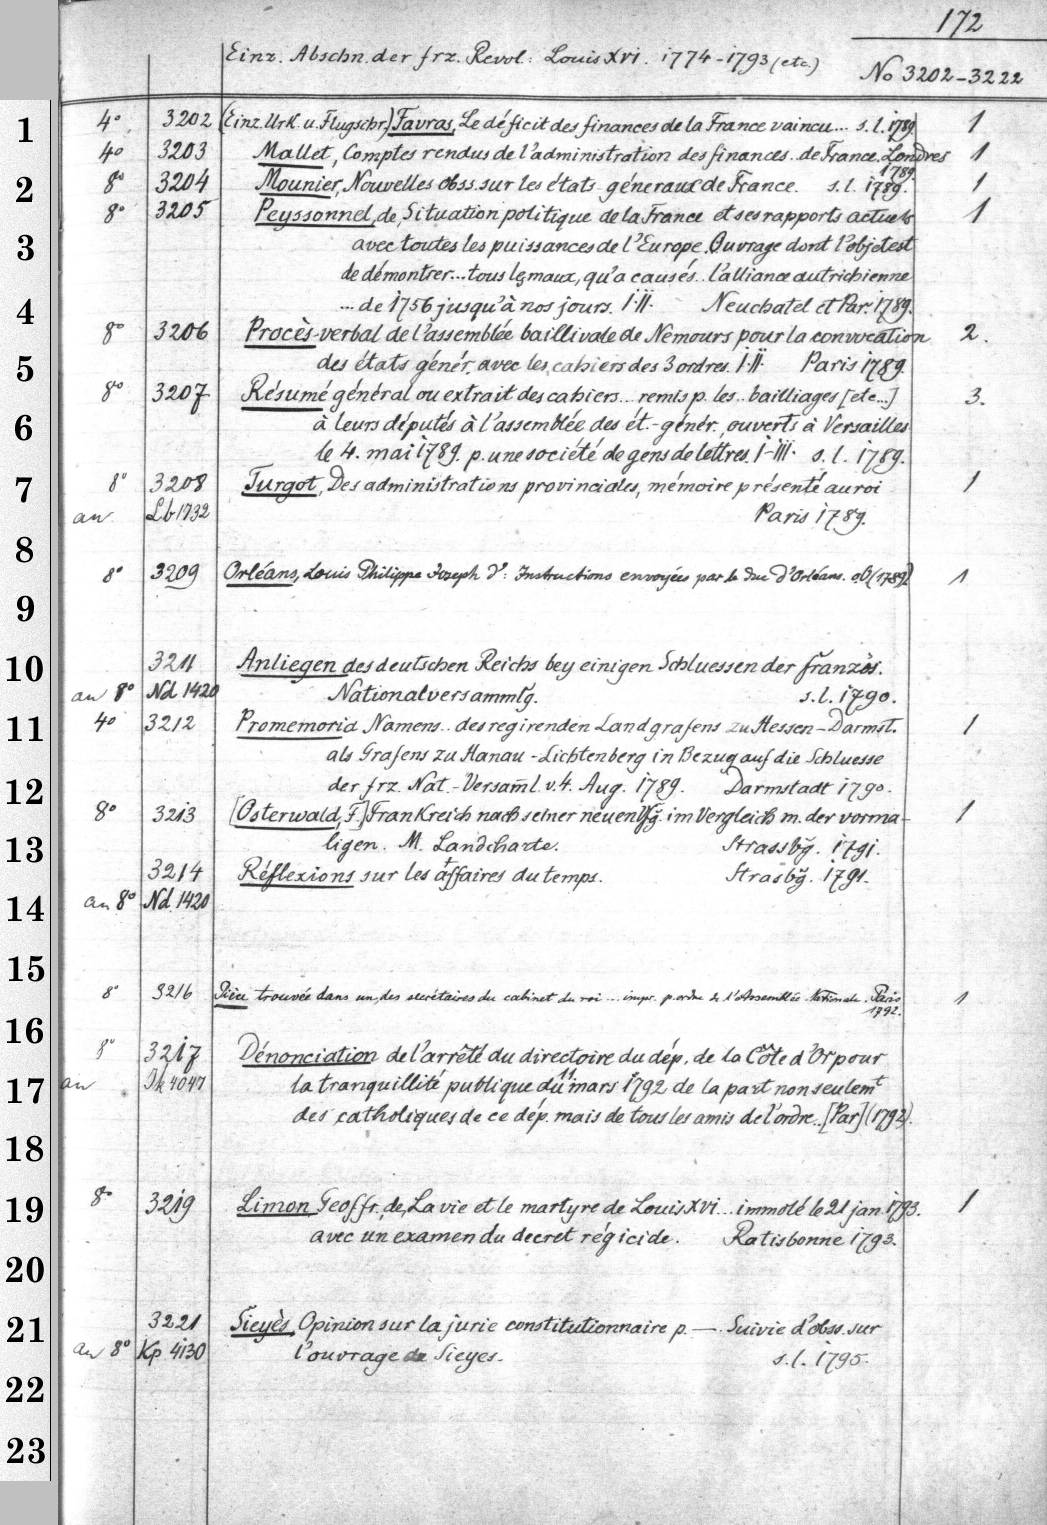 172
Einz. Abschn. der frz. Revol: Louis XVI. 1774-1793 (etc.)
No 3202-3222
4° 3202 (Einz. Urk. u. Flugschr.) Favras, Le déficit des finances de la France vaincu... s.l. 1789. 1
4° 3203 Mallet, Comptes rendus de l'administration des finances.. de France. Londres 1
1789.
8° 3204 Mounier, Nouvelles obss. sur les états-géneraux de France. s.l. 1789. 1
8° 3205 Peyssonnel, de, Situation politique de la France et ses rapports actuels 1
avec toutes les puissances de l'Europe. Ouvrage dont l'objet est
de démontrer... tous les maux, qu'a causés.. l'alliance autrichienne
... de 1756 jusqu'à nos jours. I.II. Neuchatel et Par. 1789.
8° 3206 Procès-verbal de l'assemblée baillivale de Nemours pour la convocation 2.
des états génér. avec les cahiers des 3 ordres. I.II. Paris 1789.
8° 3207 Résumé général ou extrait des cahiers... remis p. les.. bailliages [etc...] 3.
à leurs députés à l'assemblée des ét.-génér., ouverts à Versailles
le 4. mai 1789. p. une société de gens de lettres. I-III. s.l. 1789.
8° 3208 Turgot, Des administrations provinciales, mémoire présenté au roi 1
an Lb 1732 Paris 1789.
8° 3209 Orléans, Louis Philippe Joseph d': Instructions envoyées par le duc d'Orléans. oO (1789) 1
3211 Anliegen des deutschen Reichs bey einigen Schluessen der französ.
an 8° Nd 1420 Nationalversammlg. s.l. 1790.
4° 3212 Promemoria Namens.. des regirenden Landgrafens zu Hessen-Darmst. 1
als Grafens zu Hanau-Lichtenberg in Bezug auf die Schluesse
der frz. Nat.-Versaml. v. 4. Aug. 1789. Darmstadt 1790.
8° 3213 [Osterwald, F.] Frankreich nach seiner neuen Vfg. im Vergleich m. der vorma- 1
ligen. M. Landcharte. Strassbg. 1791.
3214 Réflexions sur les affaires du temps. Strasbg. 1791.
an 8° Nd 1420
8° 3216 Pièce trouvée dans un des secrétaires du cabinet du roi ... impr. p. ordre de l'Assemblée Nationale. Paris 1
1792.
8° 3217 Dénonciation de l'arrêté du directoire du dép. de la Côte d'Or pour
an 4047 la tranquillité publique du 11 mars 1792 de la part non seulemt
des catholiques de ce dép. mais de tous les amis de l'ordre.. [Par] (1792).
8° 3219 Limon Geoffr. de, La vie et le martyre de Louis XVI... immolé le 21 jan. 1793. 1
avec un examen du decret régicide. Ratisbonne 1793.
3221 Sieyès, Opinion sur la jurie constitutionnaire p. — Suivie d'obss. sur
an 8° Kp 4130 l'ouvrage de Sieyes. s.l. 1795.
1
2
3
4
5
6
7
8
9
10
11
12
13
14
15
16
17
18
19
20
21
22
23